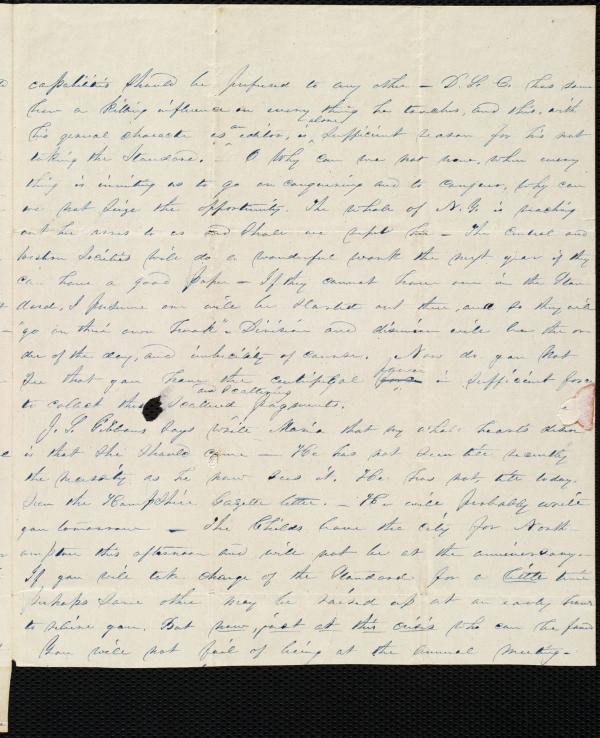 capabilities should be prefered to any other — D. L. C. has some
how a killing influence on every thing he touches, and this, with
his general character as an editor, is alone sufficient reason for his not
taking the Standard. — O why can we not now, when every
thing is inviting us to go on conquering and to conquer, why can
we not seize the opportunity. The whole of N.Y. is reaching
out her arms to us and shall we — The Central and
western Societies will do a wonderful work the next year if they
can have a good paper — If they cannot have one in the Stan
dard, I presume one will be started out there, and so they will
go on their own hook — Division and disunion will be the or
der of the day, and imbecility of course. Now do you not
see that you have the centrifugal power in sufficient force
to collect these and scattering scattered fragments.
J. S. Gibbons says write Maria that my whole heart's desire
is that she should come — He has not seen till recently
the necessity as he now sees it. He has not, till today,
seen the Hampshire Gazette letter. — He will probably write
you tomorrow — The Childs leave the city for North-
ampton this afternoon and will not be at the anniversary —
If you will take charge of the Standard for a little time
perhaps some other may be raised up at an early hour
to relieve you. But now, just at this crisis who can be found
You will not fail of being at the annual meeting —